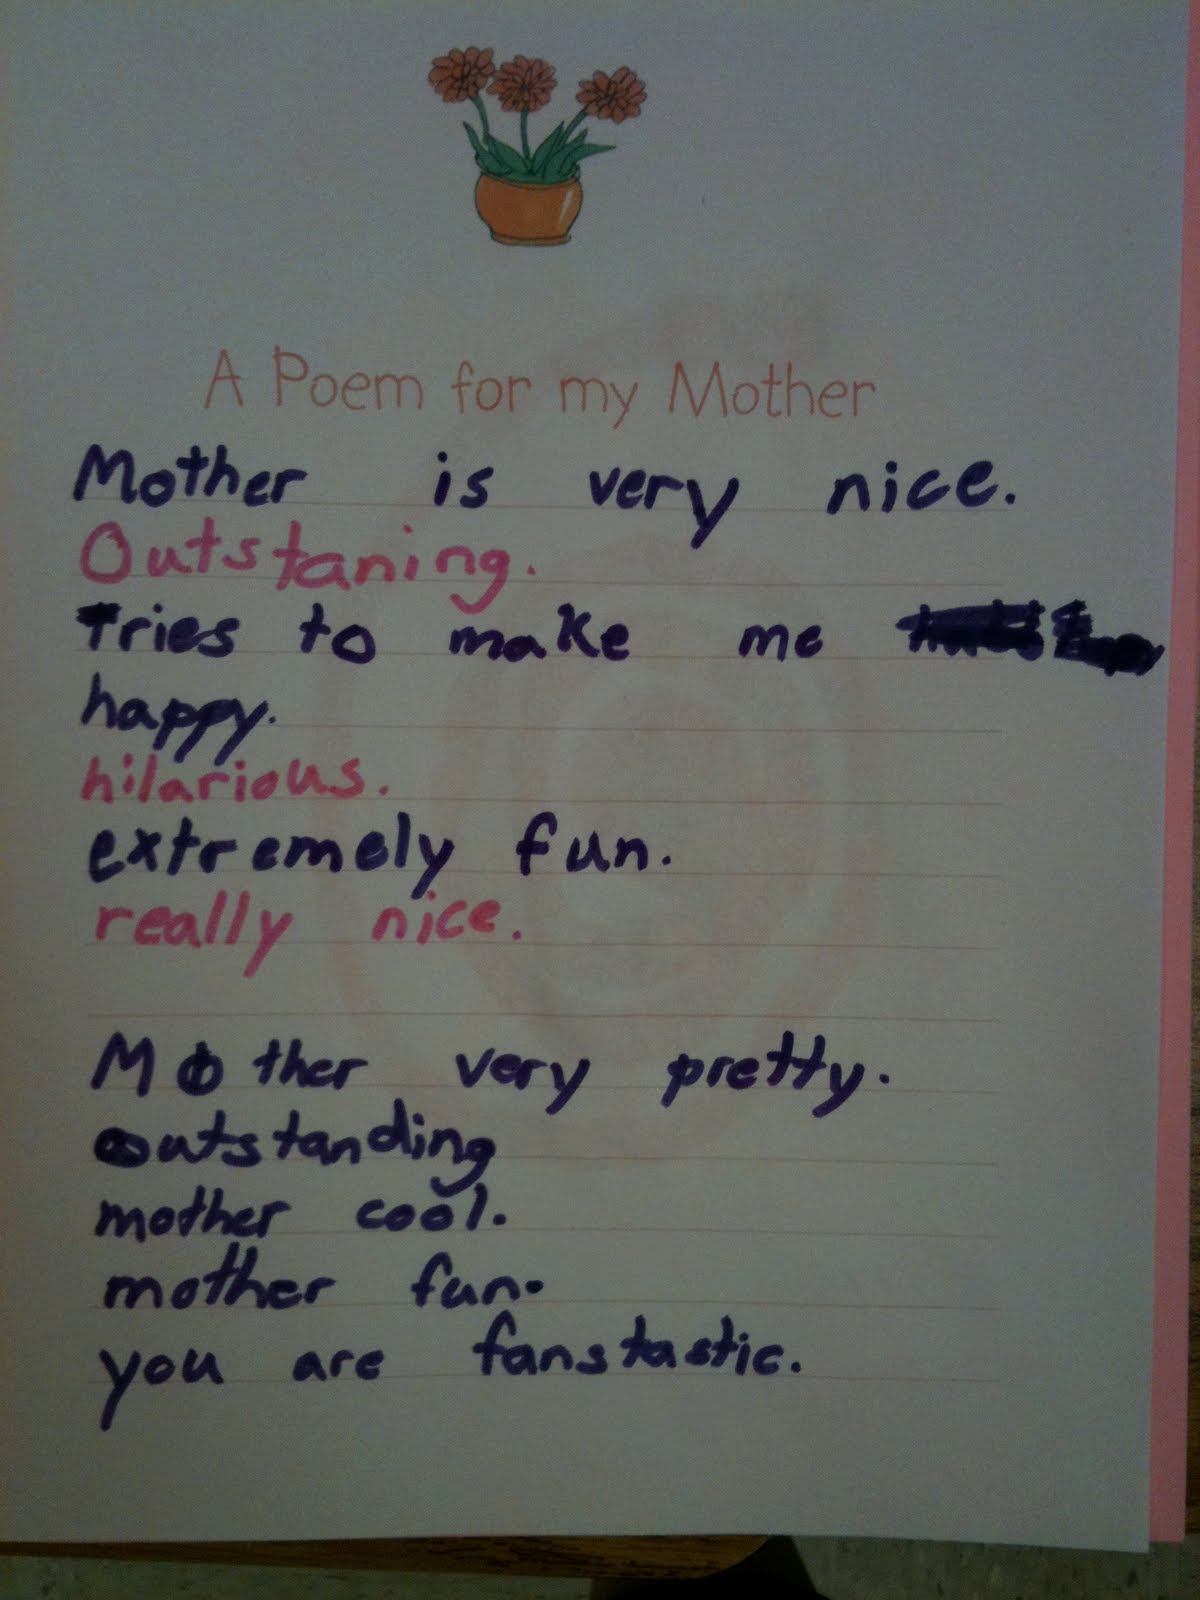 A Poem for my Mother
Mother is very nice.
Outstaning.
Tries to make me
happy.
hilarious.
extremely fun.
really nice.
Mother very pretty.
outstanding
mother cool.
mother fun.
you are fanstastic.